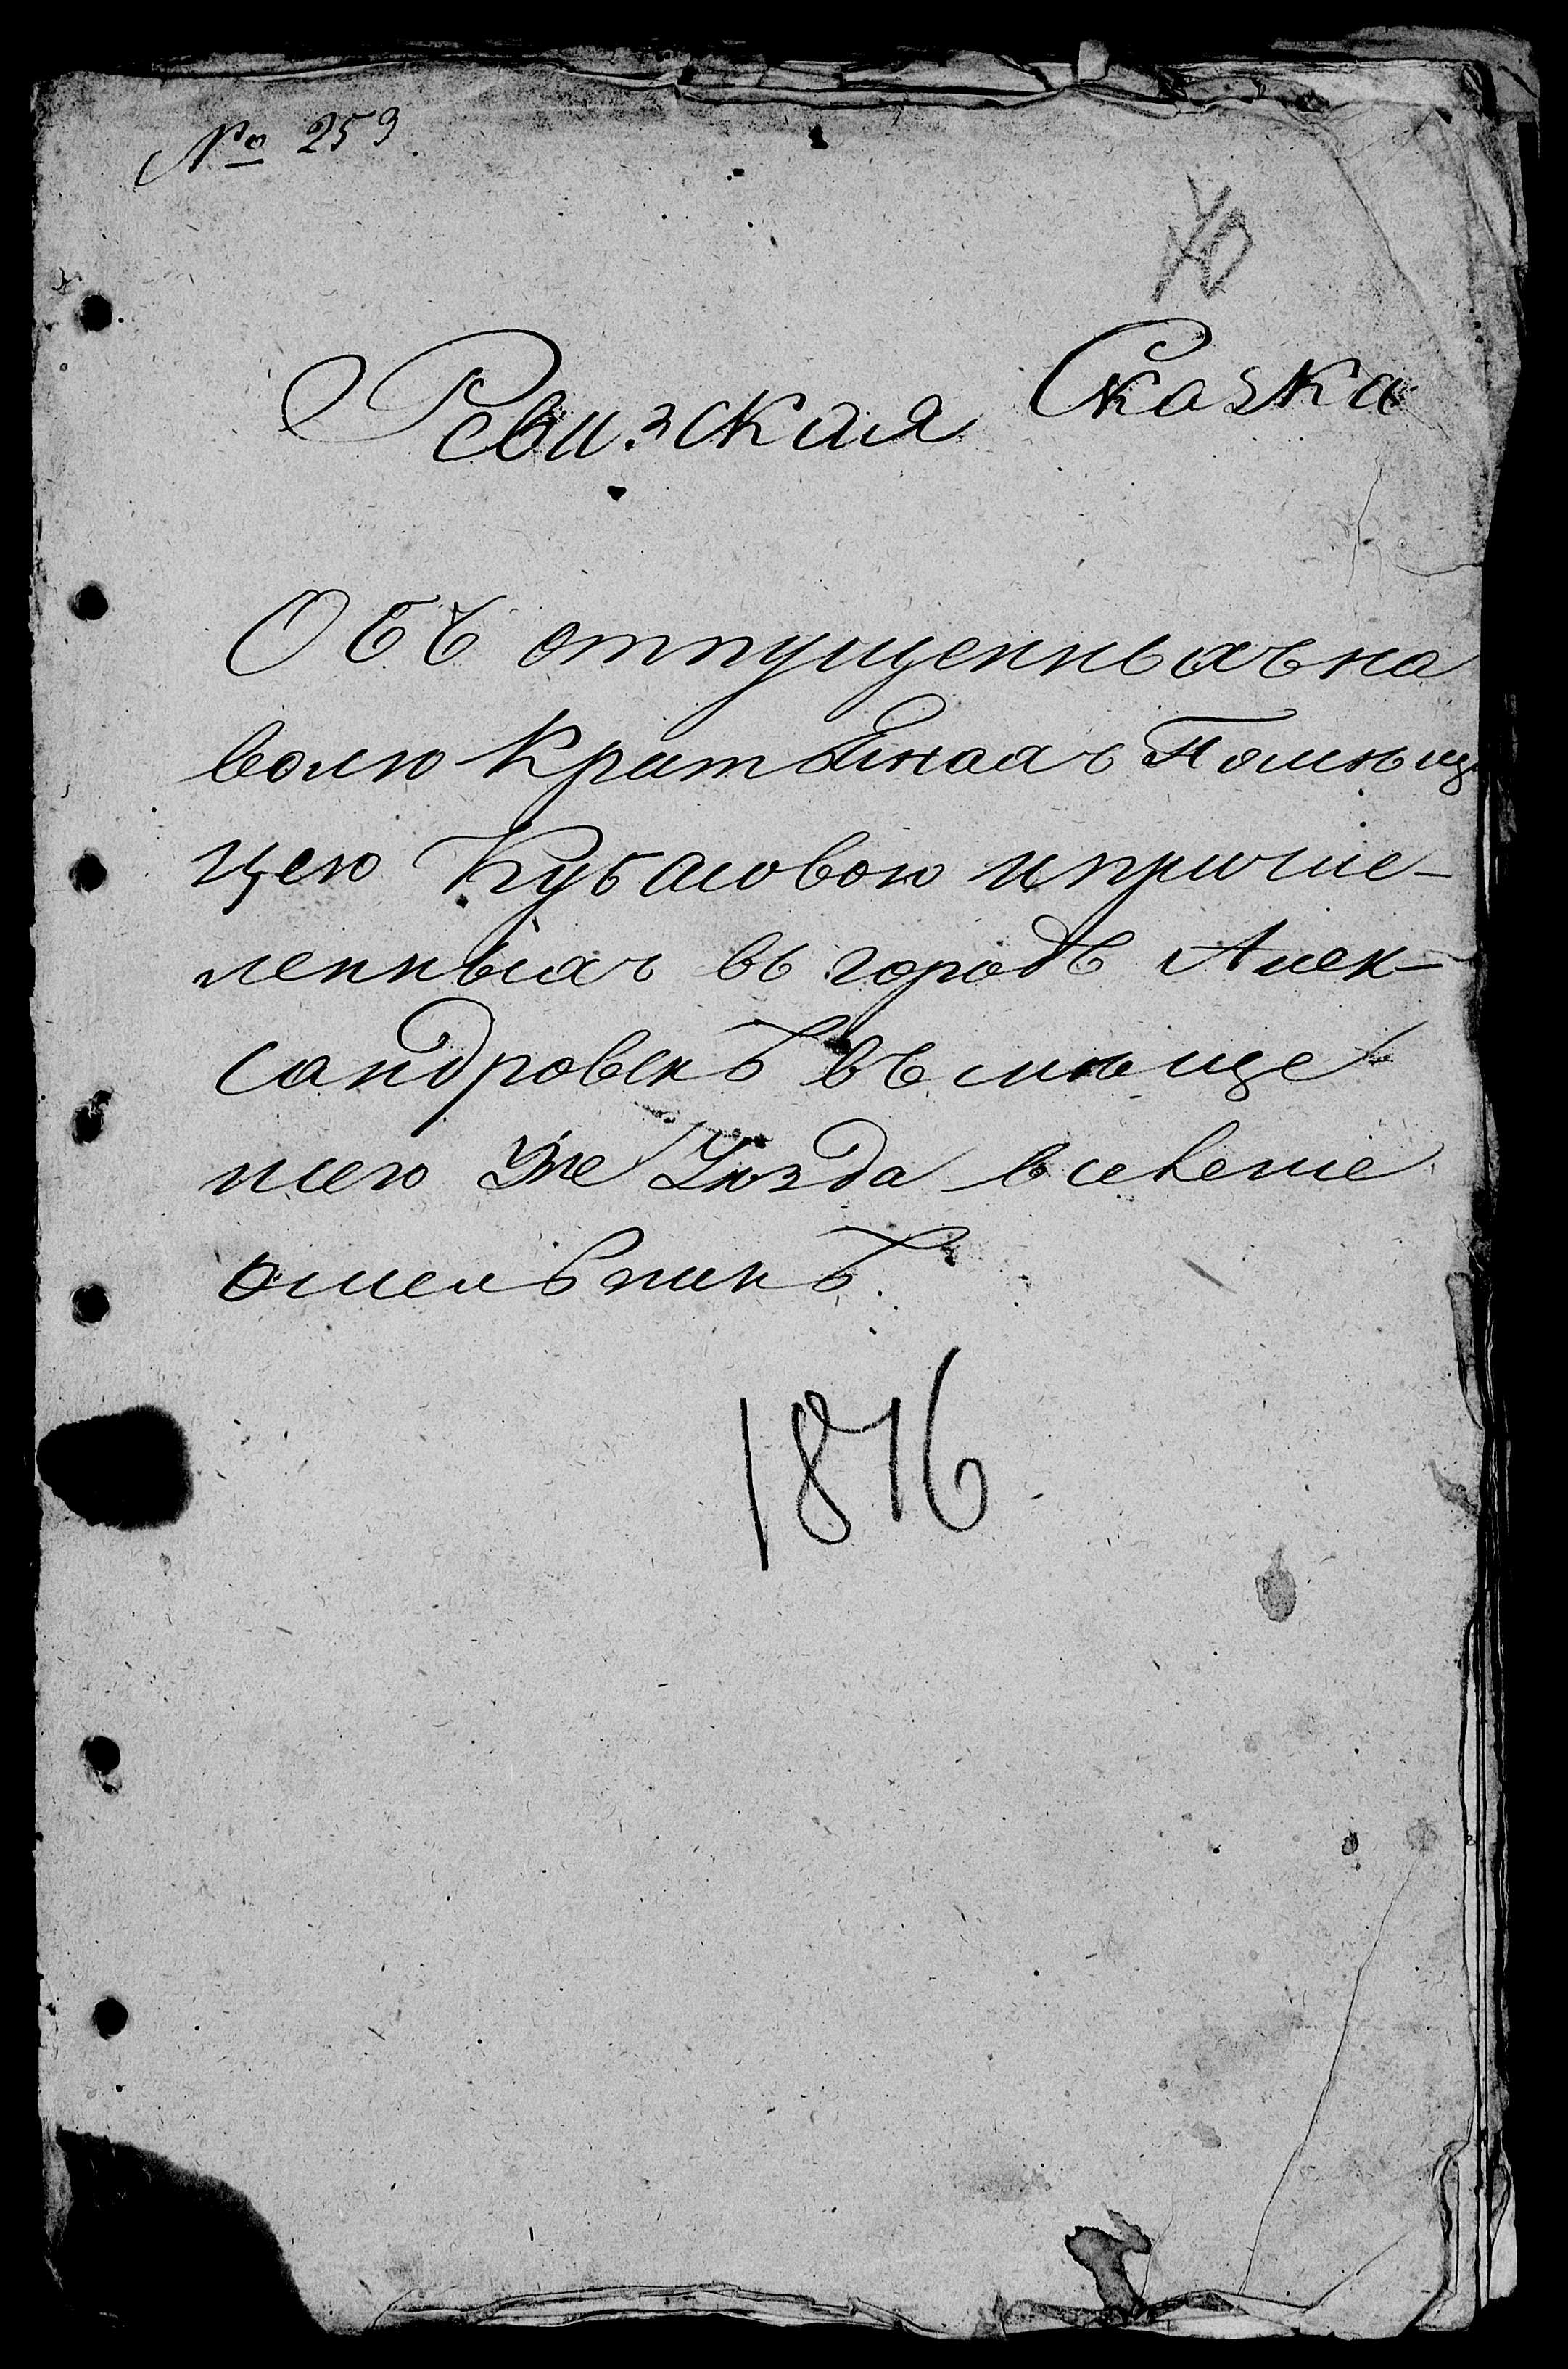 № 259
40
Ревизская Сказка
Объ отпущенныхъ на
волю Кратьянахъ Помѣщи
цею Кубасовою и причис-
ленныхъ въ городѣ Алек-
сандровскѣ въ мѣще
нсего Уѣзда в селеніе
Омельникъ.
1816